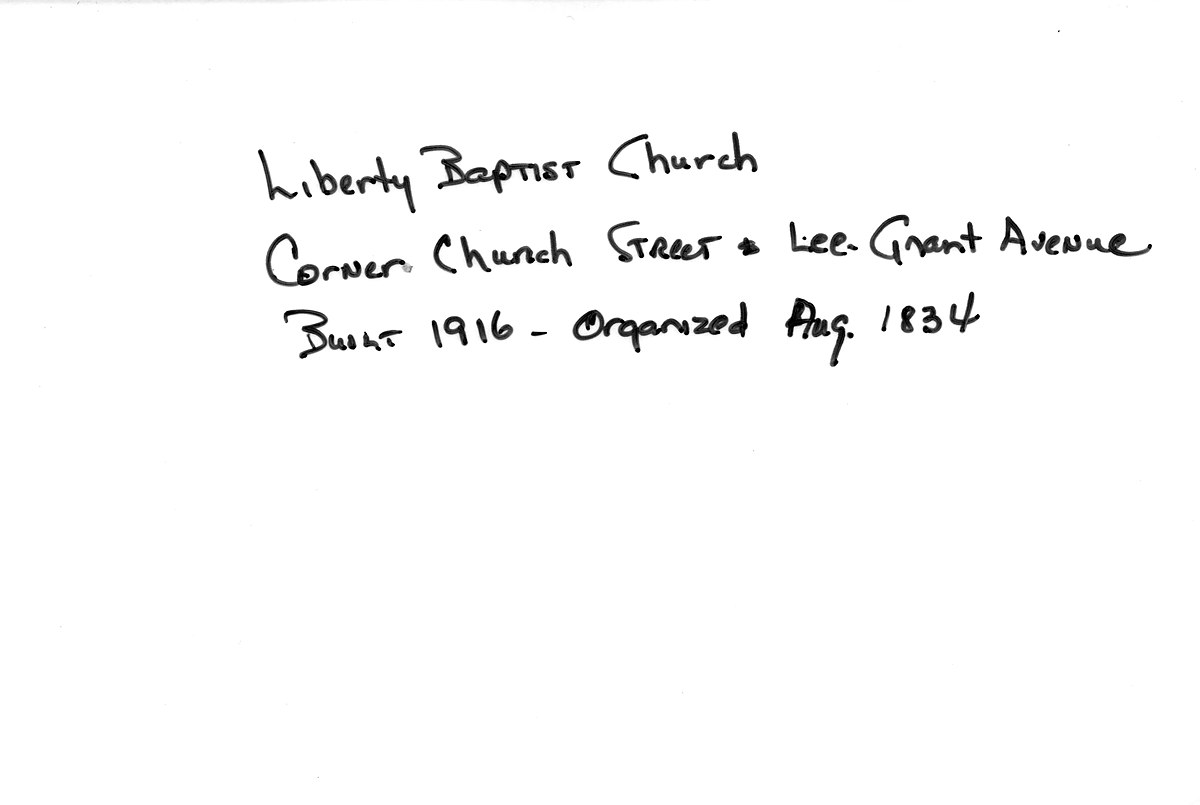 Liberty Baptist Church
Corner Church Street & Lee-Grant Avenue
Built 1916 - Organized Aug. 1834